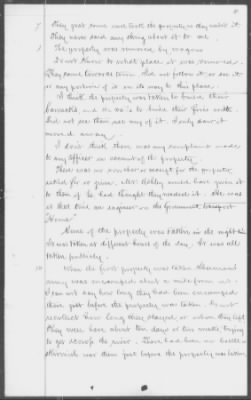 7 they just came and took the property as they needed it.
They never said any thing about it to me.
The property was removed by wagons
I do not know to what place it was removed.
They came towards town. Did not follow it or see it
or any portion of it on its way to this place.
I think the property was taken to build their
barracks, and so as to build their fires with.
Did not see them use any of it. I only saw it
moved away.
I don't think there was any complaint made
to any officer on account of the property.
There was no voucher or receipt for the property
asked for or given. Mr. would have given it
to them if he had thought they needed it. He was
at that time an engineer on the Government transport
"Home"
Some of the property was taken in the night &
was taken at different hours of the day. It was all
taken publicly.
When the first property was taken Sherman's
army was encamped about a mile from us.
I can not say how long they had been encamped
there just before the property was taken. Do not
recollect how long they stayed or when they left
They were here about ten days or two weeks, trying
to get across the river. There had been no battle or
skirmish was there just before the property was taken,